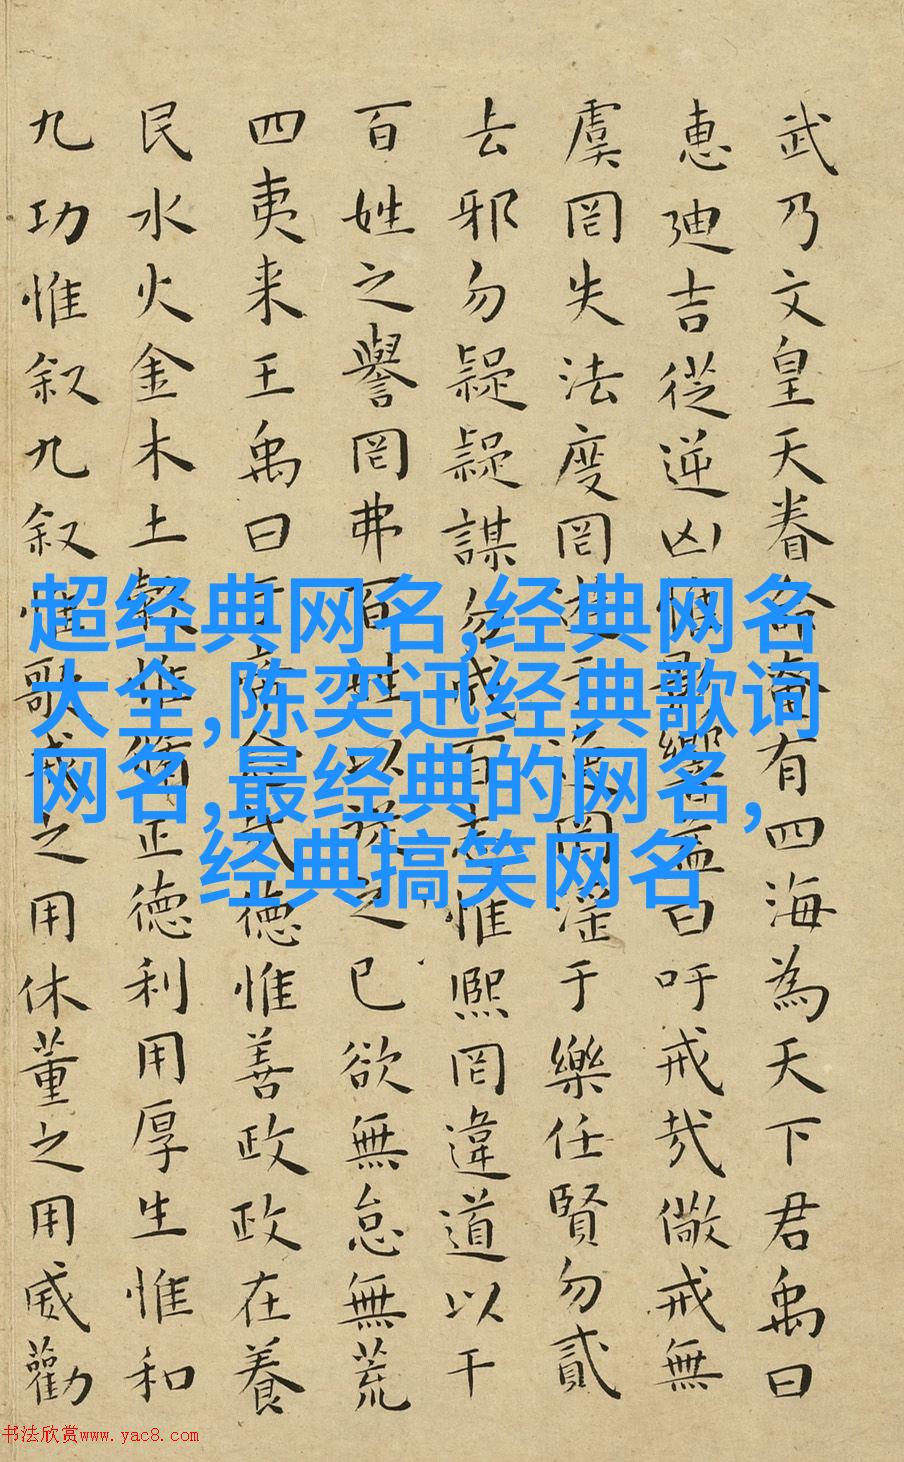 武乃文皇天眷命奄有四海為天下君禹曰
惠廸吉從逆凶惟影響益曰吁戒哉儆戒無
虞罔失法度罔遊于逸罔淫于樂任賢勿貳
去邪勿疑疑謀勿成百志惟熙罔違道以干
百姓之譽罔弗百姓以從之已欲無怠無荒
四夷来王禹曰於帝念哉德惟善政政在養
民水火金木土穀惟脩正德利用厚生惟和
九功惟叙九叙惟歌戒之用休董之用威勸
超经典网名,经典网名
大全,陈奕迅经典歌词
网名,最经典的网名,
经典搞笑网名
书法欣赏www.yac8.com